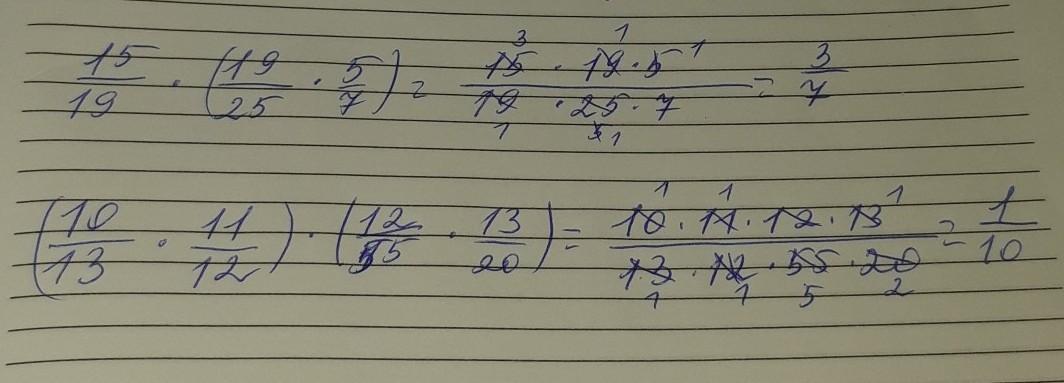 15/19 · (19/25 · 5/7) = 15 · 19 · 5 / 19 · 25 · 7 = 3/7
(10/13 · 11/12) · (12/55 · 13/20) = 10 · 11 · 12 · 13 / 13 · 12 · 55 · 20 = 1/10